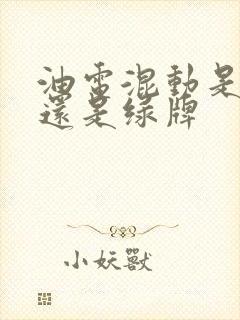 油電混動是
還是綠牌
小妖獸